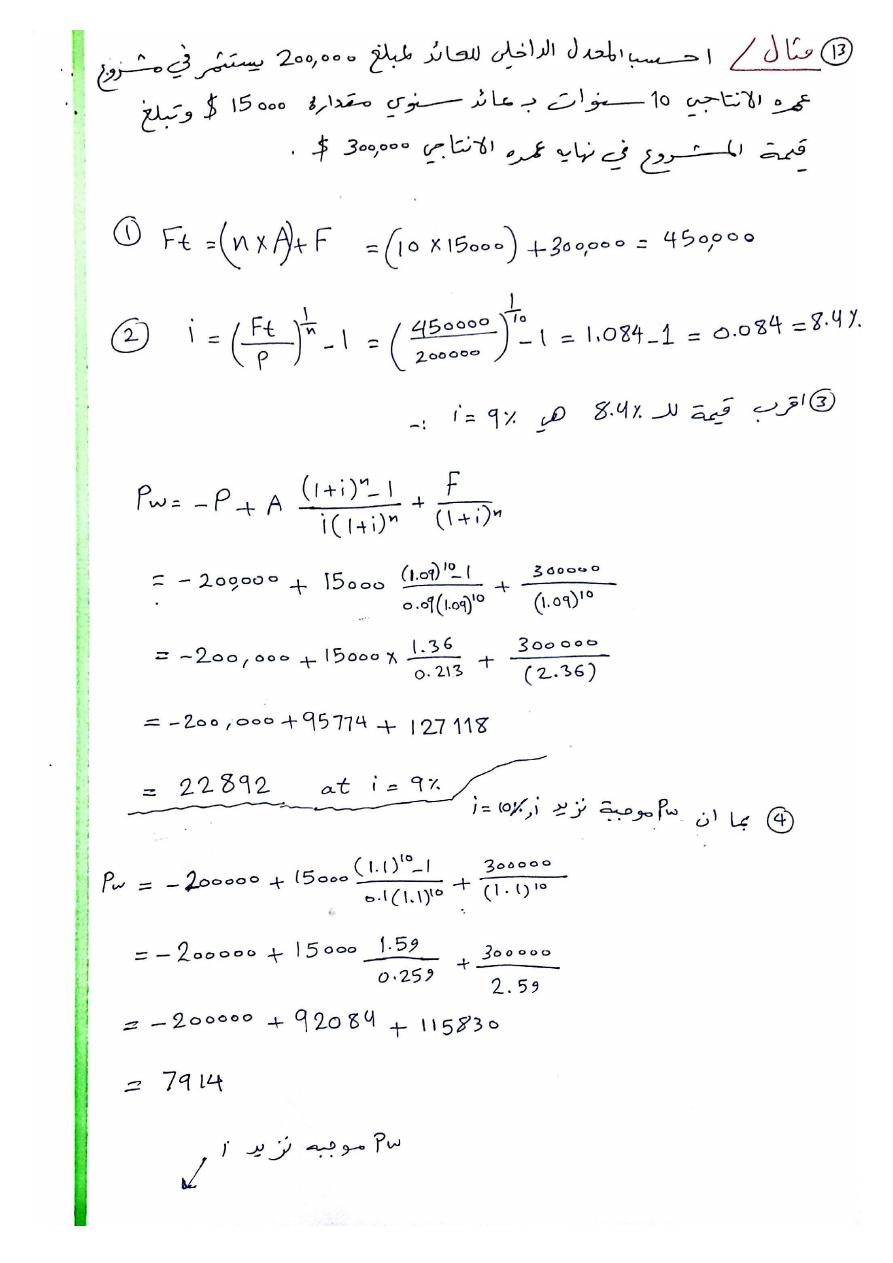 ⑬ مثال / احسب المعدل الداخلي للعائد لمبلغ 200,000 يستثمر في مشروع
عمره الانتاجي 10 سنوات بـ عائد سنوي مقداره 15000 $ وتبلغ
قيمة المشروع في نهايه عمره الانتاجي 300,000 $ .
① Ft = (n×A)+F = (10 × 15000) + 300,000 = 450,000
② i = (Ft/P)^(1/n) - 1 = (450000/200000)^(1/10) - 1 = 1.084 - 1 = 0.084 = 8.4%.
③ اقرب قيمة للـ 8.4% هي i = 9% :-
Pw = -P + A ((1+i)^n - 1)/(i(1+i)^n) + F/(1+i)^n
= -200,000 + 15000 ((1.09)^10 - 1)/(0.09(1.09)^10) + 300000/(1.09)^10
= -200,000 + 15000 × 1.36/0.213 + 300000/(2.36)
= -200,000 + 95774 + 127118
= 22892 at i = 9%
④ بما ان Pw موجبة نزيد i, i = 10%
Pw = -200000 + 15000 ((1.1)^10 - 1)/(0.1(1.1)^10) + 300000/(1.1)^10
= -200000 + 15000 1.59/0.259 + 300000/2.59
= -200000 + 92084 + 115830
= 7914
Pw موجبه نزيد i